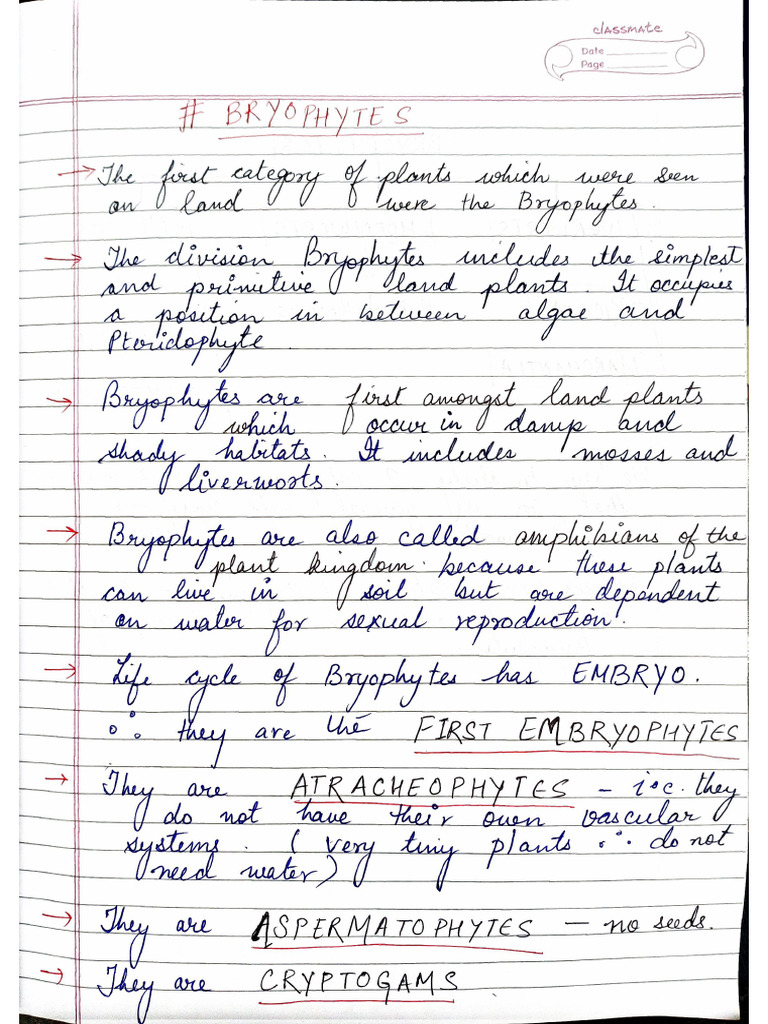 classmate
Date
Page
# BRYOPHYTES
→ The first category of plants which were seen
on land were the Bryophytes.
→ The division Bryophytes includes the simplest
and primitive land plants. It occupies
a position in between algae and
Pteridophyte.
→ Bryophytes are first amongst land plants
which occur in damp and
shady habitats. It includes mosses and
liverworts.
→ Bryophytes are also called amphibians of the
plant kingdom because these plants
can live in soil but are dependent
on water for sexual reproduction.
→ Life cycle of Bryophytes has EMBRYO.
∴ they are the FIRST EMBRYOPHYTES
→ They are ATRACHEOPHYTES - i.e. they
do not have their own vascular
systems. (very tiny plants ∴ do not
need water)
→ They are ASPERMATOPHYTES - no seeds.
→ They are CRYPTOGAMS